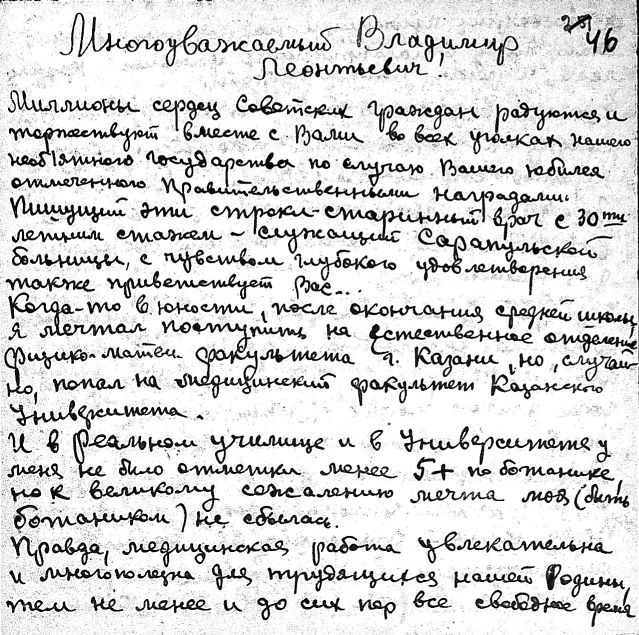 46
Многоуважаемый Владимир
Леонтьевич,
Миллионы сердец Советских граждан радуются и
торжествуют вместе с Вами во всех уголках нашего
необъятного государства по случаю Вашего юбилея
отмеченного Правительственными наградами.
Пишущий эти строки-старинный врач с 30ти
летним стажем - служащий Сарапульской
больницы, с чувством глубокого удовлетворения
также приветствует Вас...
Когда-то в юности, после окончания средней школы
я мечтал поступить на естественное отделение
физико-матем факультета г. Казани, но, случай-
но, попал на медицинский факультет Казанского
Университета.
И в Реальном училище и в Университете у
меня не было отметки менее 5+ по ботанике,
но к великому сожалению мечта моя (быть
ботаником) не сбылась.
Правда, медицинская работа увлекательна
и многополезна для трудящихся нашей Родины,
тем не менее и до сих пор все свободное время